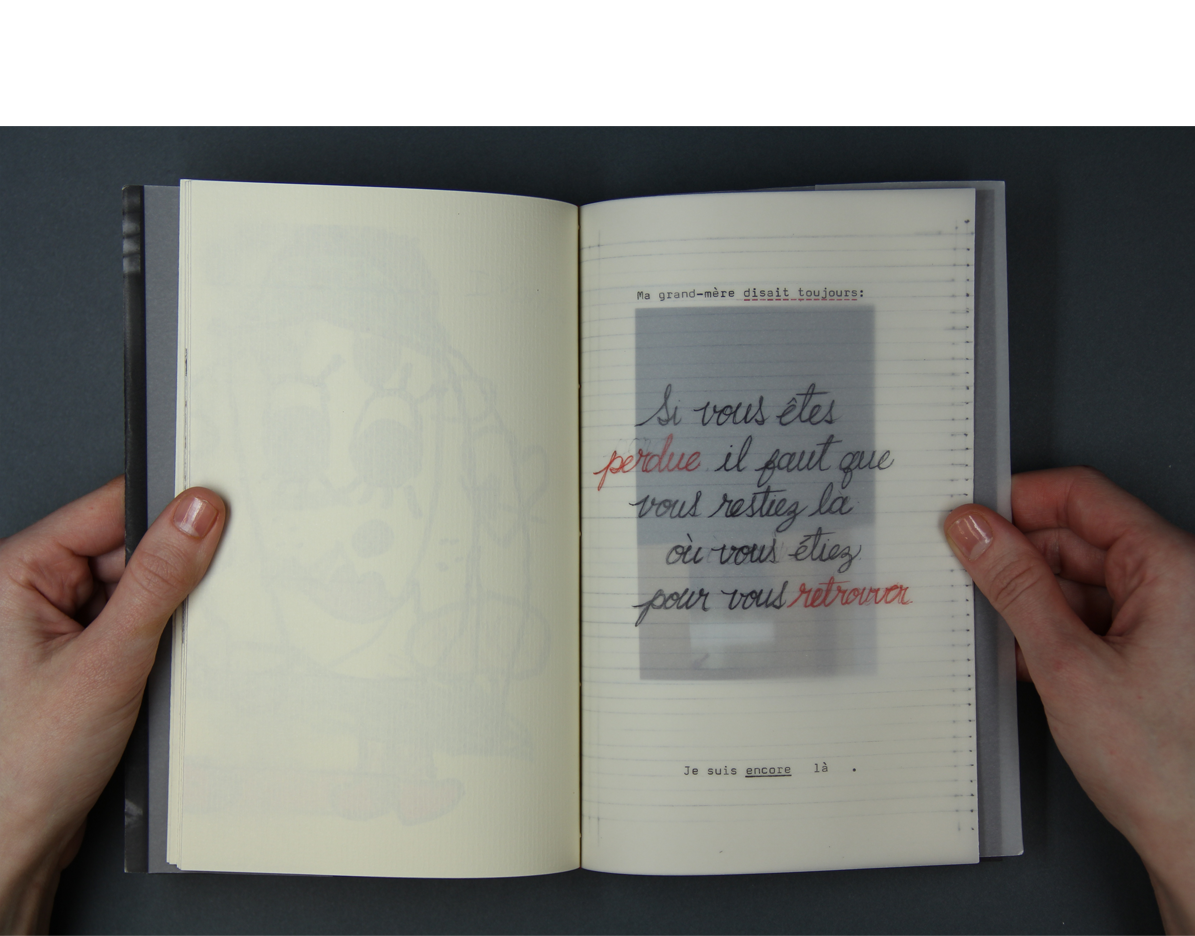 Ma grand-mère disait toujours:
Si vous êtes
perdue il faut que
vous restiez là
où vous étiez
pour vous retrouver.
Je suis encore là .